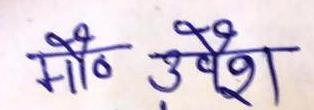 मौ० उवैश